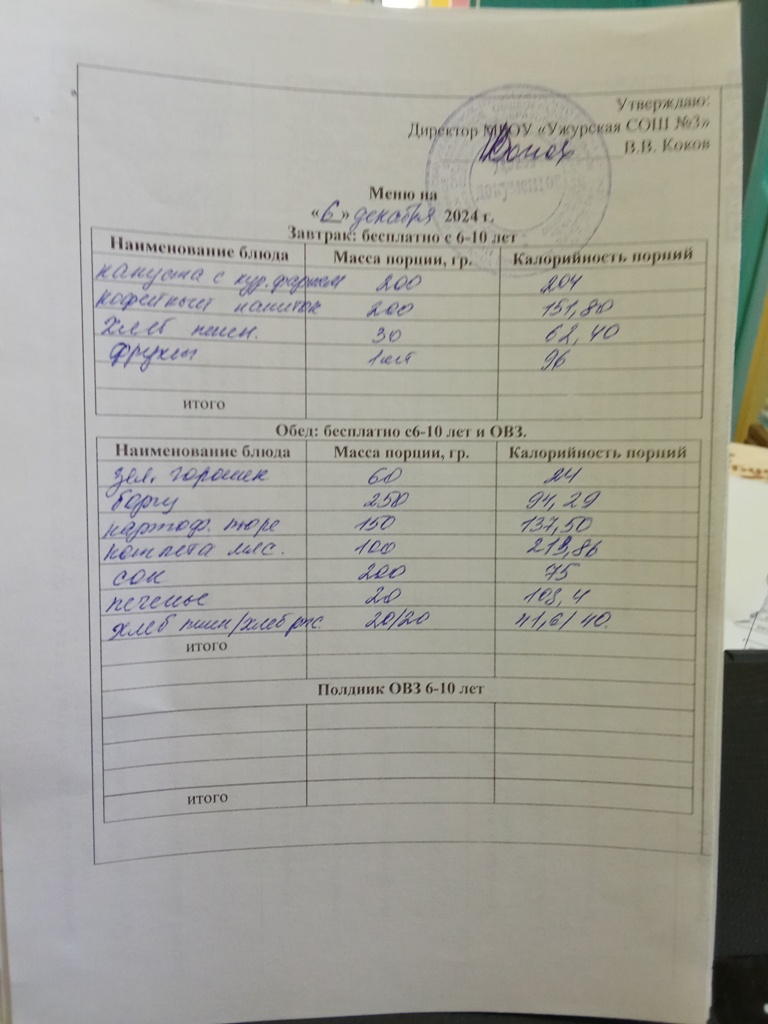 Утверждаю:
Директор МКОУ «Ужурская СОШ №3»
В.В. Коков
документов
Меню на
«6» декабря 2024 г.
Завтрак: бесплатно с 6-10 лет
Наименование блюда Масса порции, гр. Калорийность порций
капуста с кур. фаршем 200 204
кофейный напиток 200 151,80
хлеб пшен. 30 62,40
фрукты 1шт 96
итого
Обед: бесплатно с6-10 лет и ОВЗ.
Наименование блюда Масса порции, гр. Калорийность порций
зел. горошек 60 24
борщ 250 94,29
картоф. пюре 150 137,50
котлета мяс. 100
сок 200 75
печенье 20
хлеб пшен/хлеб рж. 20/20 41,6/40.
итого
Полдник ОВЗ 6-10 лет
итого